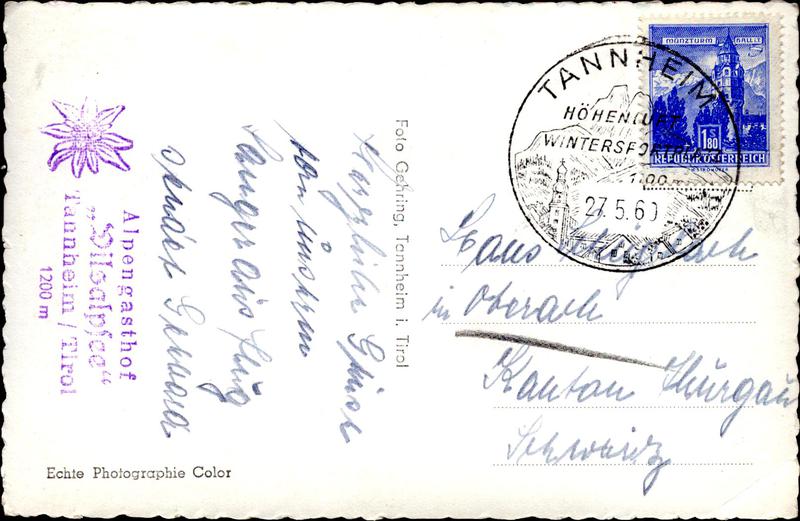 Alpengasthof
„Vilsalpsee“
Tannheim / Tirol
1200 m
Herzliche Grüße
von unserem
Sänger ausflug
Foto Gehring, Tannheim i. Tirol
Echte Photographie Color
MÜNZTURM HALL I.T.
S 1.80
REPUBLIK ÖSTERREICH
TANNHEIM
HÖHENLUFT
WINTERSPORTPLATZ
1100 m
27.5.60
Hans
in Oberach
Kanton Thurgau
Schweiz